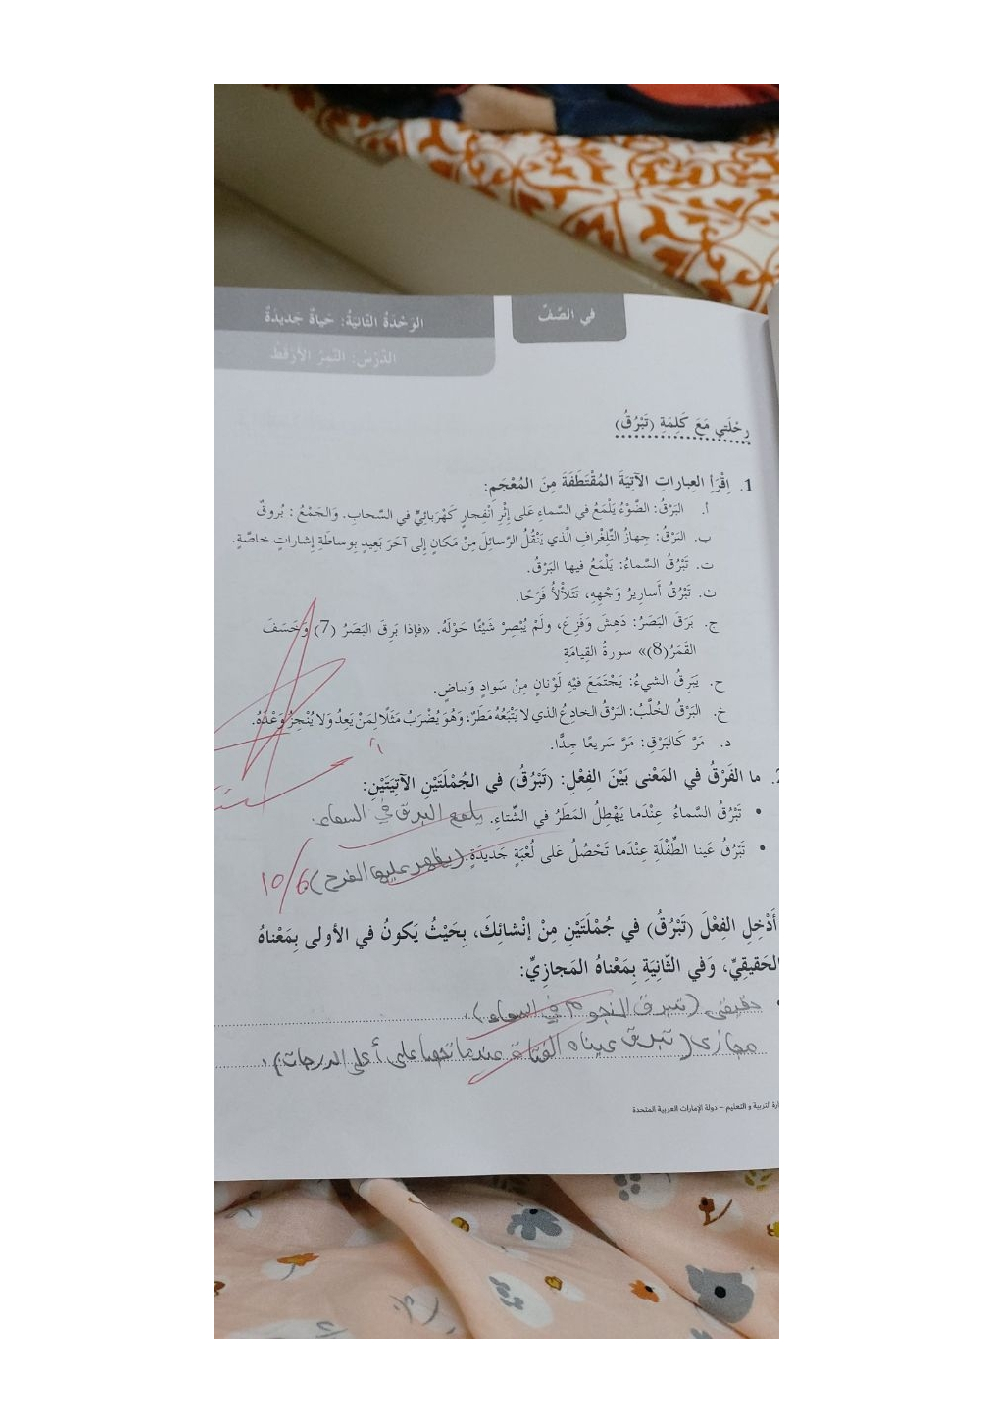 في الصَّفِّ
الوَحْدَةُ الثّانِيَةُ: حَياةٌ جَديدَةٌ
الدَّرْسُ: النَّمِرُ الأَرْقَطُ
رِحْلَتي مَعَ كَلِمَةِ (تَبْرُقُ)
1. اِقْرَأِ العِباراتِ الآتِيَةَ المُقْتَطَفَةَ مِنَ المُعْجَمِ:
أ. البَرْقُ: الضَّوْءُ يَلْمَعُ في السَّماءِ عَلى إِثْرِ انْفِجارٍ كَهْرَبائِيٍّ في السَّحابِ. وَالجَمْعُ: بُروقٌ
ب. البَرْقُ: جِهازُ التِّلِغْرافِ الَّذي يَنْقُلُ الرَّسائِلَ مِنْ مَكانٍ إِلى آخَرَ بَعِيدٍ بِوساطَةِ إِشاراتٍ خاصَّةٍ.
ت. تَبْرُقُ السَّماءُ: يَلْمَعُ فيها البَرْقُ.
ث. تَبْرُقُ أَساريرُ وَجْهِهِ، تَتَلَأْلَأُ فَرَحًا.
ج. بَرَقَ البَصَرُ: دَهِشَ وَفَزِعَ، ولَمْ يُبْصِرْ شَيْئًا حَوْلَهُ. «فَإِذا بَرِقَ البَصَرُ (7) وَخَسَفَ
القَمَرُ(8)» سورةُ القِيامَةِ
ح. يَبْرقُ الشيءُ: يَجْتَمَعَ فيْهِ لَوْنانِ مِنْ سَوادٍ وَبياضٍ.
خ. البَرْقُ الخُلَّبُ: البَرْقُ الخادِعُ الذي لا يَتْبَعُهُ مَطَرٌ، وَهُوَ يُضْرَبُ مَثَلًا لِمَنْ يَعِدُ وَلا يُنْجِزُ وَعْدَهُ.
د. مَرَّ كَالبَرْقِ: مَرَّ سَريعًا جِدًّا.
2. ما الفَرْقُ في المَعْنى بَيْنَ الفِعْلِ: (تَبْرُقُ) في الجُمْلَتَيْنِ الآتِيَتَيْنِ:
• تَبْرُقُ السَّماءُ عِنْدَما يَهْطِلُ المَطَرُ في الشِّتاءِ. يلمع البرق في السماء.
• تَبْرُقُ عَينا الطِّفْلَةِ عِنْدَما تَحْصُلُ عَلى لُعْبَةٍ جَديدَةٍ. (يظهر عليها الفرح)
10/6
أَدْخِلِ الفِعْلَ (تَبْرُقُ) في جُمْلَتَيْنِ مِنْ إِنْشائِكَ، بِحَيْثُ يَكونُ في الأولى بِمَعْناهُ
الحَقيقِيِّ، وَفي الثّانِيَةِ بِمَعْناهُ المَجازِيِّ:
حقيقي (تبرق النجوم في السماء).
مجازى (تبرق عيناه الفتاة عندما تحصل على أعلى الدرجات).
ارة لتربية و التعليم – دولة الإمارات العربية المتحدة